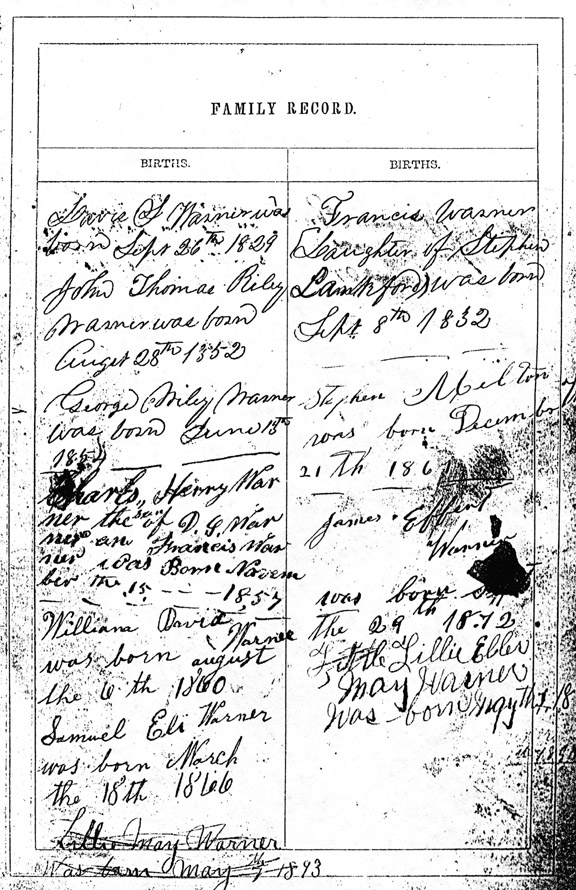 FAMILY RECORD.
BIRTHS.
G Warner was
born Sept 26th 1829
John Thomas Riley
Warner was born
August 28th 1852
George Wiley Warner
was born June 18th
Charls, Henry War
ner the son of D G War
ner an Francis War
ner was Born Novem
ber the 15 - - - 1857
William David
Warner
was born august
the 6 th 1860
Samuel Eli Warner
was born March
the 18th 1866
Lillie May Warner
Was born May 1893
BIRTHS.
Francis Warner
Daughter of Stephen
Lankford) was born
Sept 8th 1832
Stephen Milton
was born December
21 th 186
James
Warner
was born
the 29 th 1872
Lillie Ellen
May Warner
Was - born May